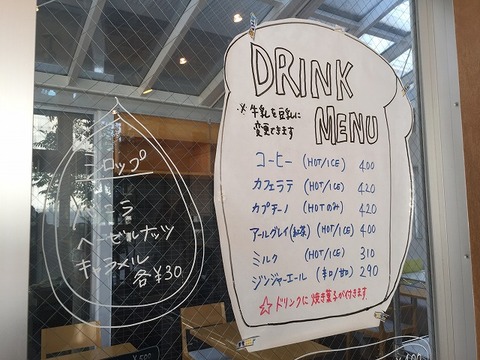 シロップ
バニラ
ヘーゼルナッツ
キャラメル
各¥30
DRINK
MENU
※牛乳を豆乳に
変更できます
コーヒー (HOT/ICE) 400
カフェラテ (HOT/ICE) 420
カプチーノ (HOTのみ) 420
アールグレイ(紅茶) (HOT/ICE) 400
ミルク (HOT/ICE) 310
ジンジャーエール (辛口/甘口) 290
☆ドリンクに焼き菓子が付きます